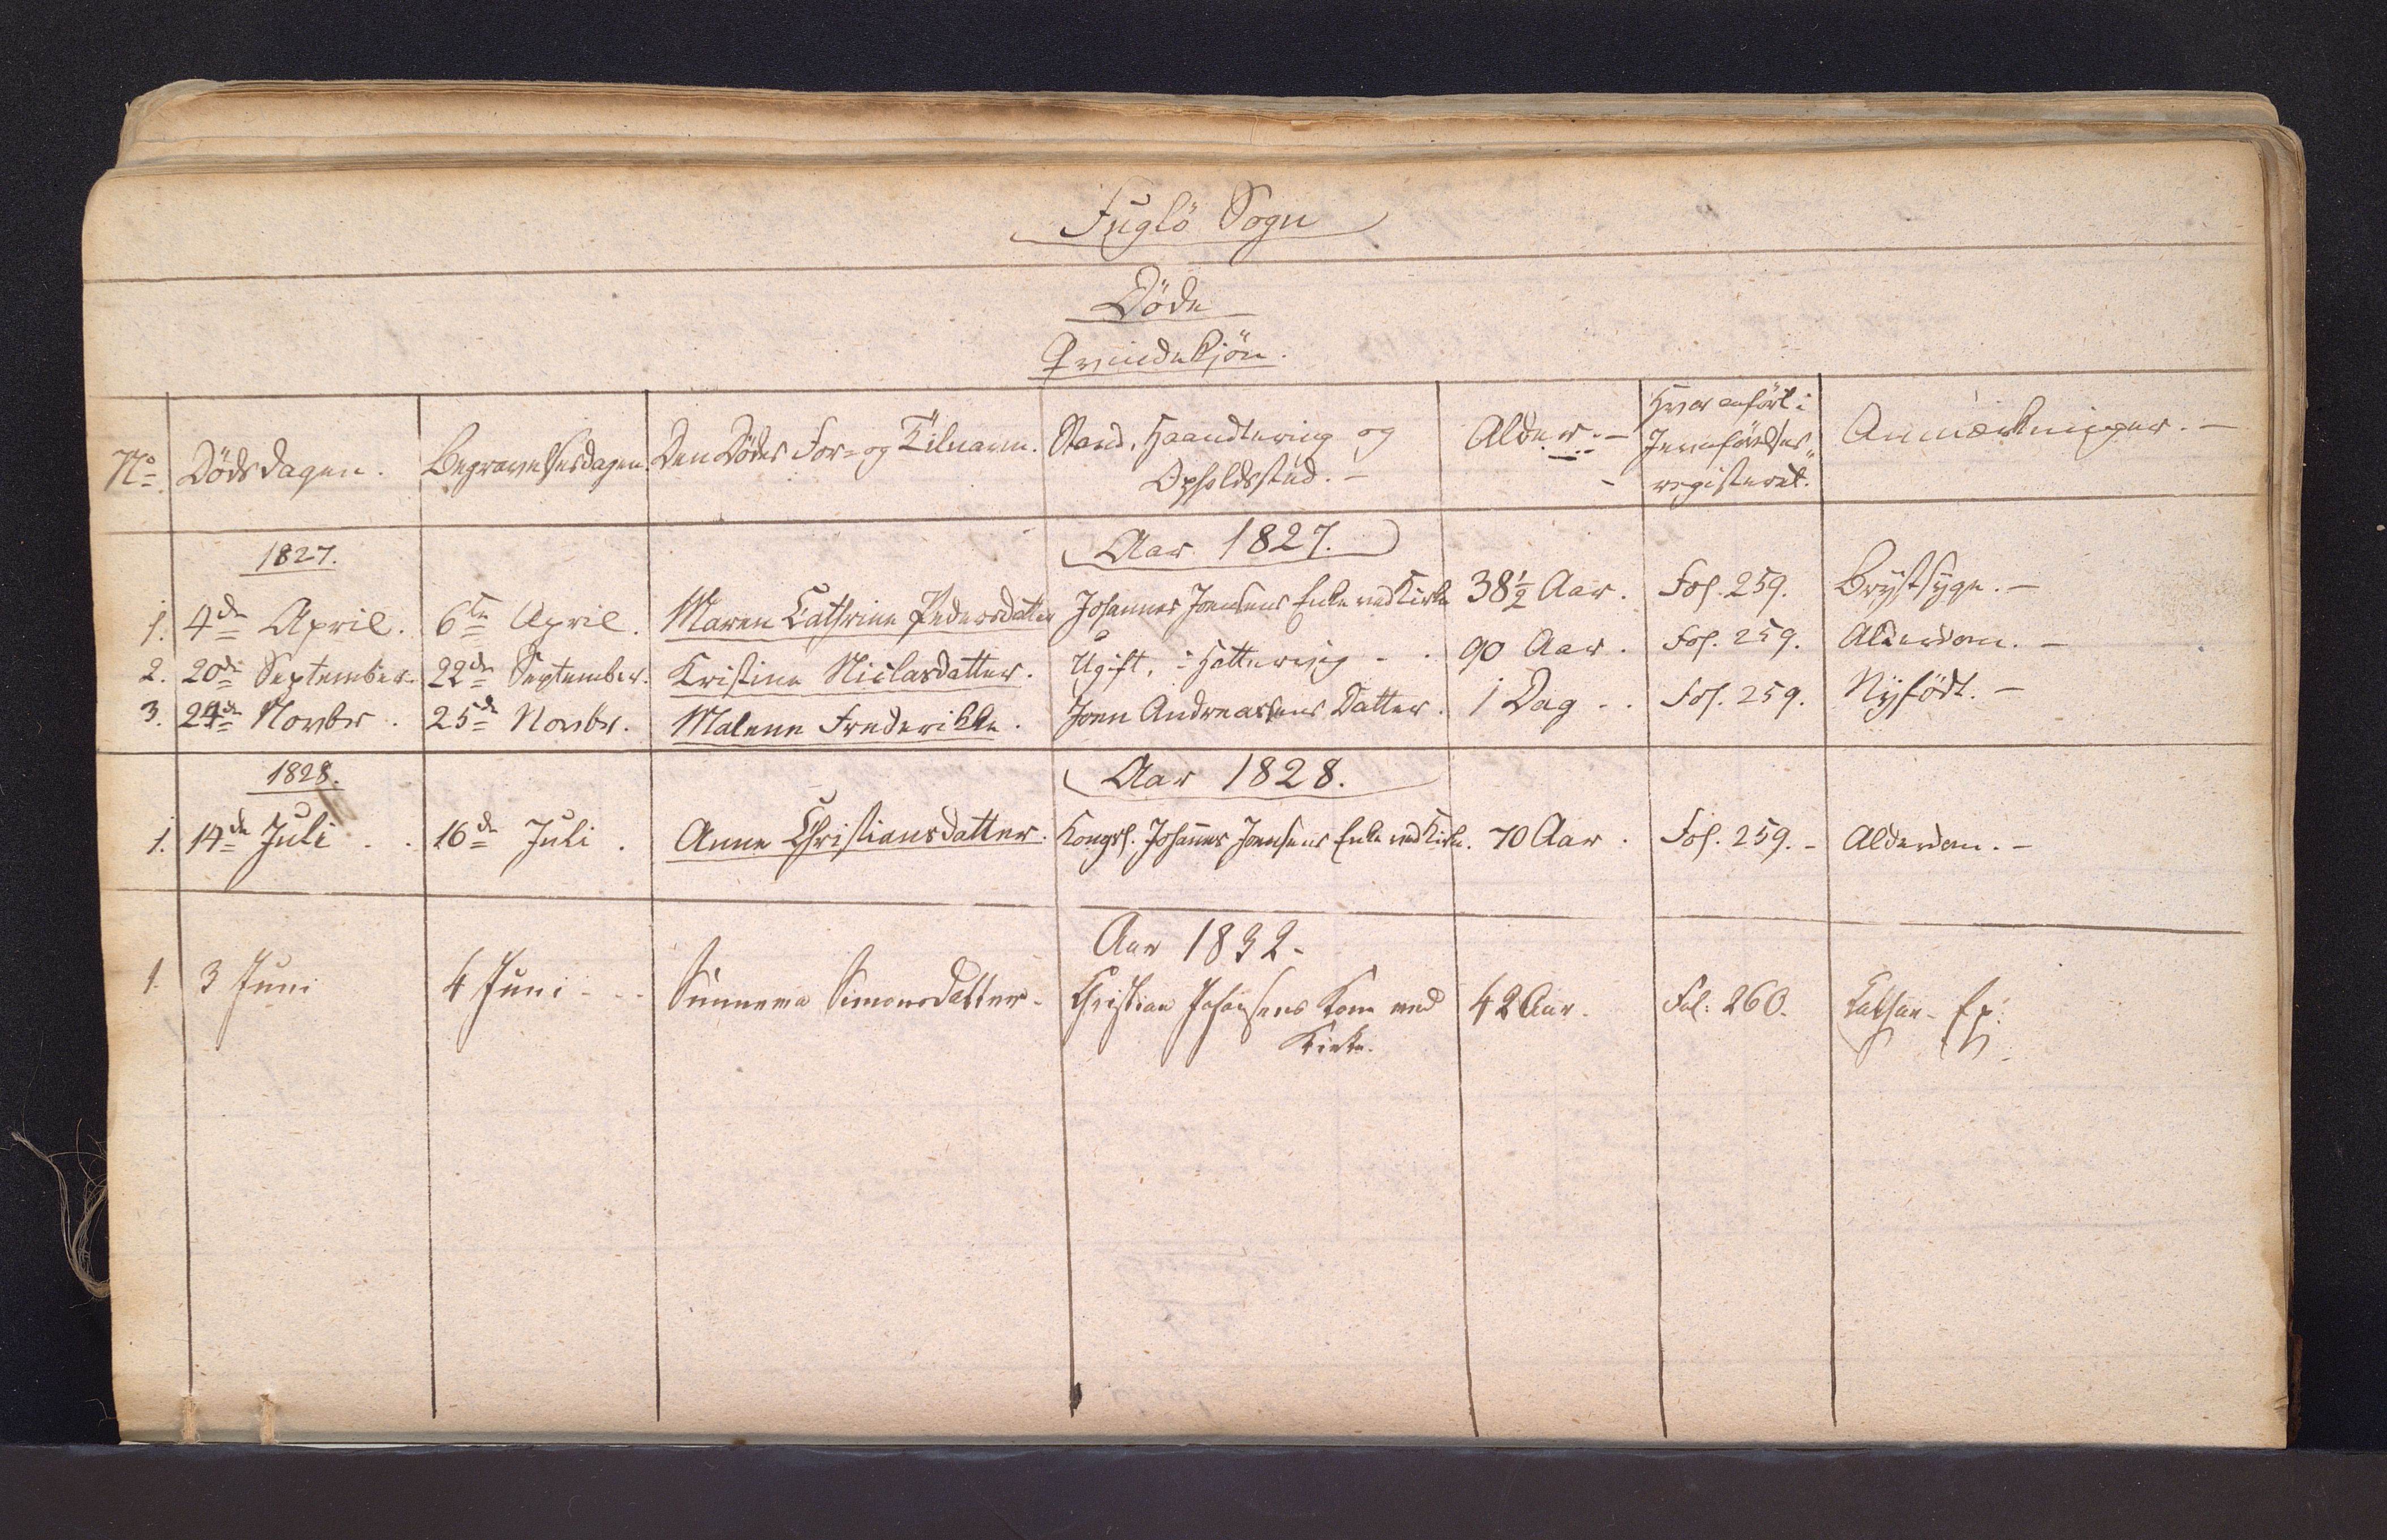 Fuglö Sogn
Döde
Qvindekjön.
No Dödsdagen. Begravelsesdagen. Den Dödes For- og Tilnavn. Stand, Haandtering og Opholdssted. – Alder. – Hvor anfört i Jevnförelses- registeret. Anmærkninger. –
1827. Aar 1827.
1. 4de April. 6te April. Maren Cathrine Pedersdatter Johannes Joensens Enke ved Kirke 38½ Aar. Fol. 259. Brystsyge. –
2. 20de September. 22de September. Kristine Niclasdatter. Ugift, i Hattervig - . 90 Aar. Fol. 259. Alderdom. –
3. 24de Novbr. 25de Novbr. Malene Frederikke. Joen Andreasens Datter. 1 Dag . . Fol. 259. Nyfödt. –
1828. Aar 1828.
1. 14de Juli . . 16de Juli . Anne Christiansdatter. Kongsb. Johannes Joensens Enke ved Kirke. 70 Aar . Fol. 259. - Alderdom. –
Aar 1832-
1. 3 Juni 4 Juni - . . Sunneva Simonsdatter - Christian Johansens Kone ved 42 Aar. Fol: 260. Cathar- Ep:
Kirke.